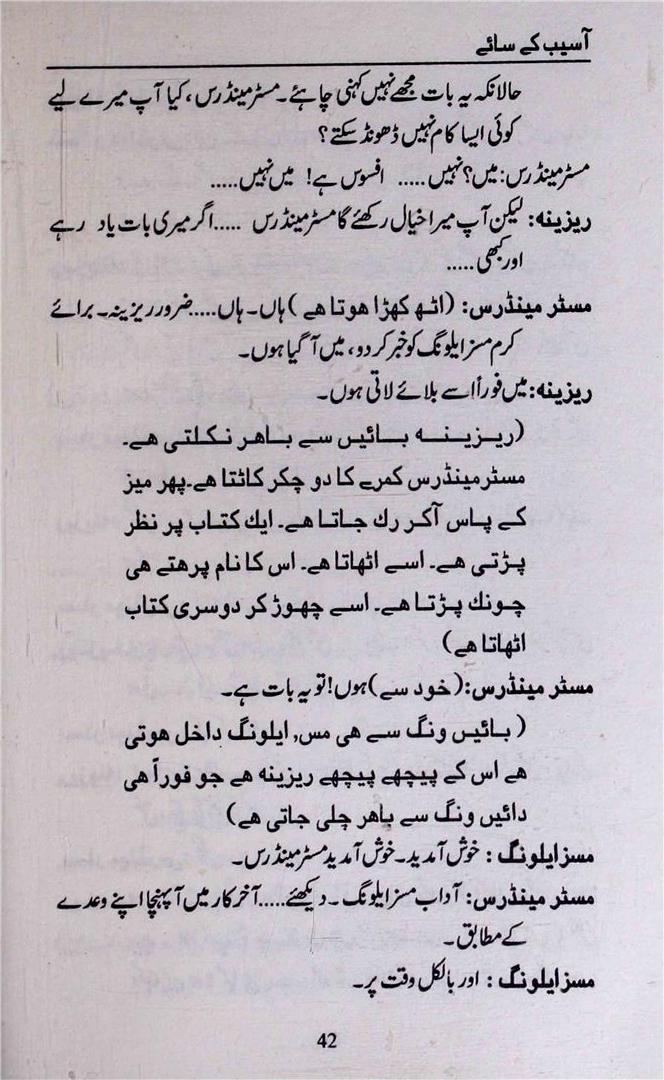 آسیب کے سائے
حالانکہ یہ بات مجھے نہیں کہنی چاہئے۔ مسٹر مینڈرس، کیا آپ میرے لیے
کوئی ایسا کام نہیں ڈھونڈ سکتے؟
مسٹر مینڈرس: میں؟ نہیں ..... افسوس ہے! میں نہیں.....
ریزینہ: لیکن آپ میرا خیال رکھئے گا مسٹر مینڈرس .....اگر میری بات یاد رہے
اور کبھی.....
مسٹر مینڈرس: (اٹھ کھڑا ہوتا ہے) ہاں۔ ہاں.....ضرور ریزینہ۔ برائے
کرم مسز ایلونگ کو خبر کر دو، میں آ گیا ہوں۔
ریزینہ: میں فوراً اسے بلائے لاتی ہوں۔
(ریزینہ بائیں سے باہر نکلتی ہے۔
مسٹر مینڈرس کمرے کا دو چکر کاٹتا ہے۔پھر میز
کے پاس آکر رك جاتا ہے۔ ایك کتاب پر نظر
پڑتی ہے۔ اسے اٹھاتا ہے۔ اس کا نام پرھتے ہی
چونك پڑتا ہے۔ اسے چھوڑ کر دوسری کتاب
اٹھاتا ہے)
مسٹر مینڈرس:(خود سے) ہوں! تو یہ بات ہے۔
( بائیں ونگ سے ہی مس, ایلونگ داخل ہوتی
ہے اس کے پیچھے پیچھے ریزینہ ہے جو فوراً ہی
دائیں ونگ سے باہر چلی جاتی ہے)
مسز ایلونگ : خوش آمدید۔ خوش آمدید مسٹر مینڈرس۔
مسٹر مینڈرس: آداب مسز ایلونگ۔ دیکھئے.....آخر کار میں آ پہنچا اپنے وعدے
کے مطابق۔
مسز ایلونگ : اور بالکل وقت پر۔
42